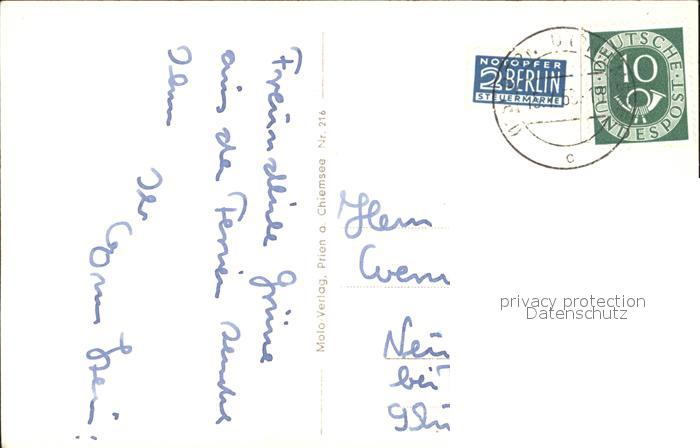 Freundliche Grüße
aus den Ferien sendet
Ihnen
Ihr
Molo-Verlag, Prien a. Chiemsee Nr. 216
NOTOPFER
2 BERLIN
STEUERMARKE
DEUTSCHE
10
BUNDESPOST
c
Herrn
Wern
Neu
bei
privacy protection
Datenschutz